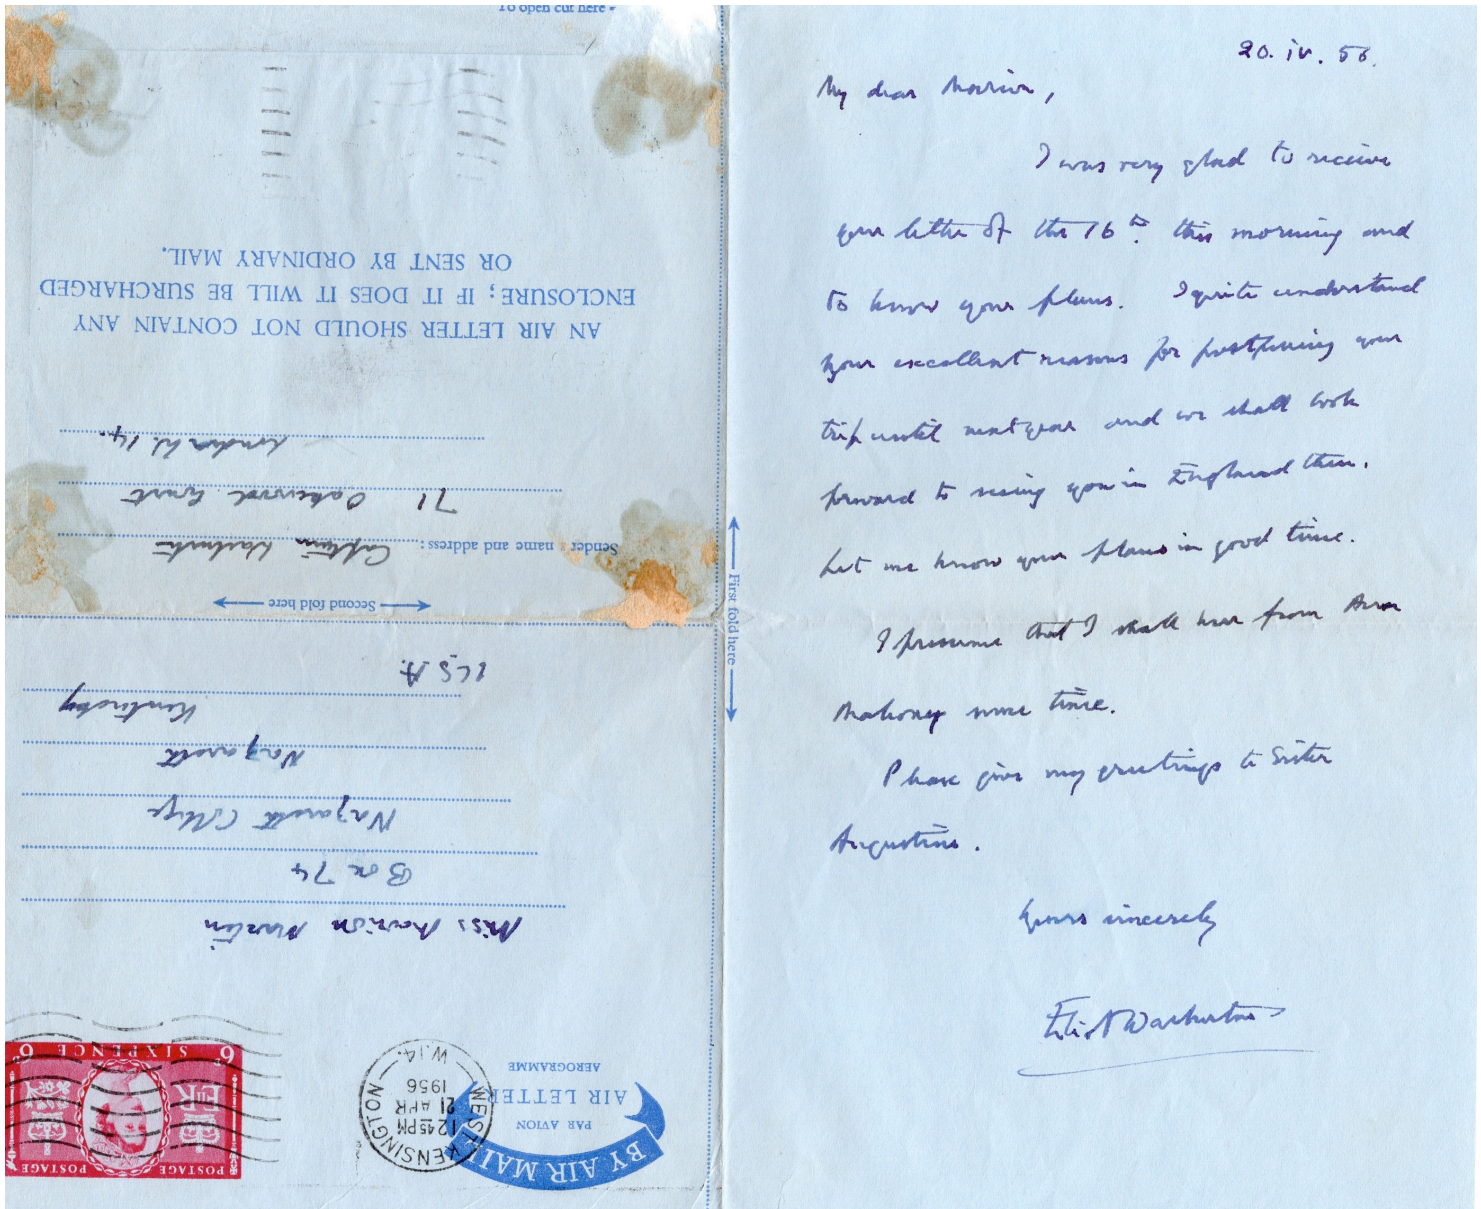 To open cut here
AN AIR LETTER SHOULD NOT CONTAIN ANY
ENCLOSURE; IF IT DOES IT WILL BE SURCHARGED
OR SENT BY ORDINARY MAIL.
Sender's name and address: Captain Warburton
71 Oakwood Court
London W. 14.
Second fold here
First fold here
BY AIR MAIL
PAR AVION
AIR LETTER
AEROGRAMME
WEST KENSINGTON
12 45 PM
21 APR
1956
W.14.
POSTAGE POSTAGE
E R
6D SIXPENCE 6D
Miss Marion Martin
Box 74
Nazareth College
Nazareth
Kentucky
U.S.A.
20. iv. 56.
My dear Marion,
I was very glad to receive
your letter of the 16th. this morning and
to know your plans. I quite understand
your excellent reasons for postponing your
trip until next year and we shall look
forward to seeing you in England then.
Let me know your plans in good time.
I presume that I shall hear from Ann
Mahoney some time.
Please give my greetings to Sister
Augustine.
Yours sincerely
Eliot Warburton